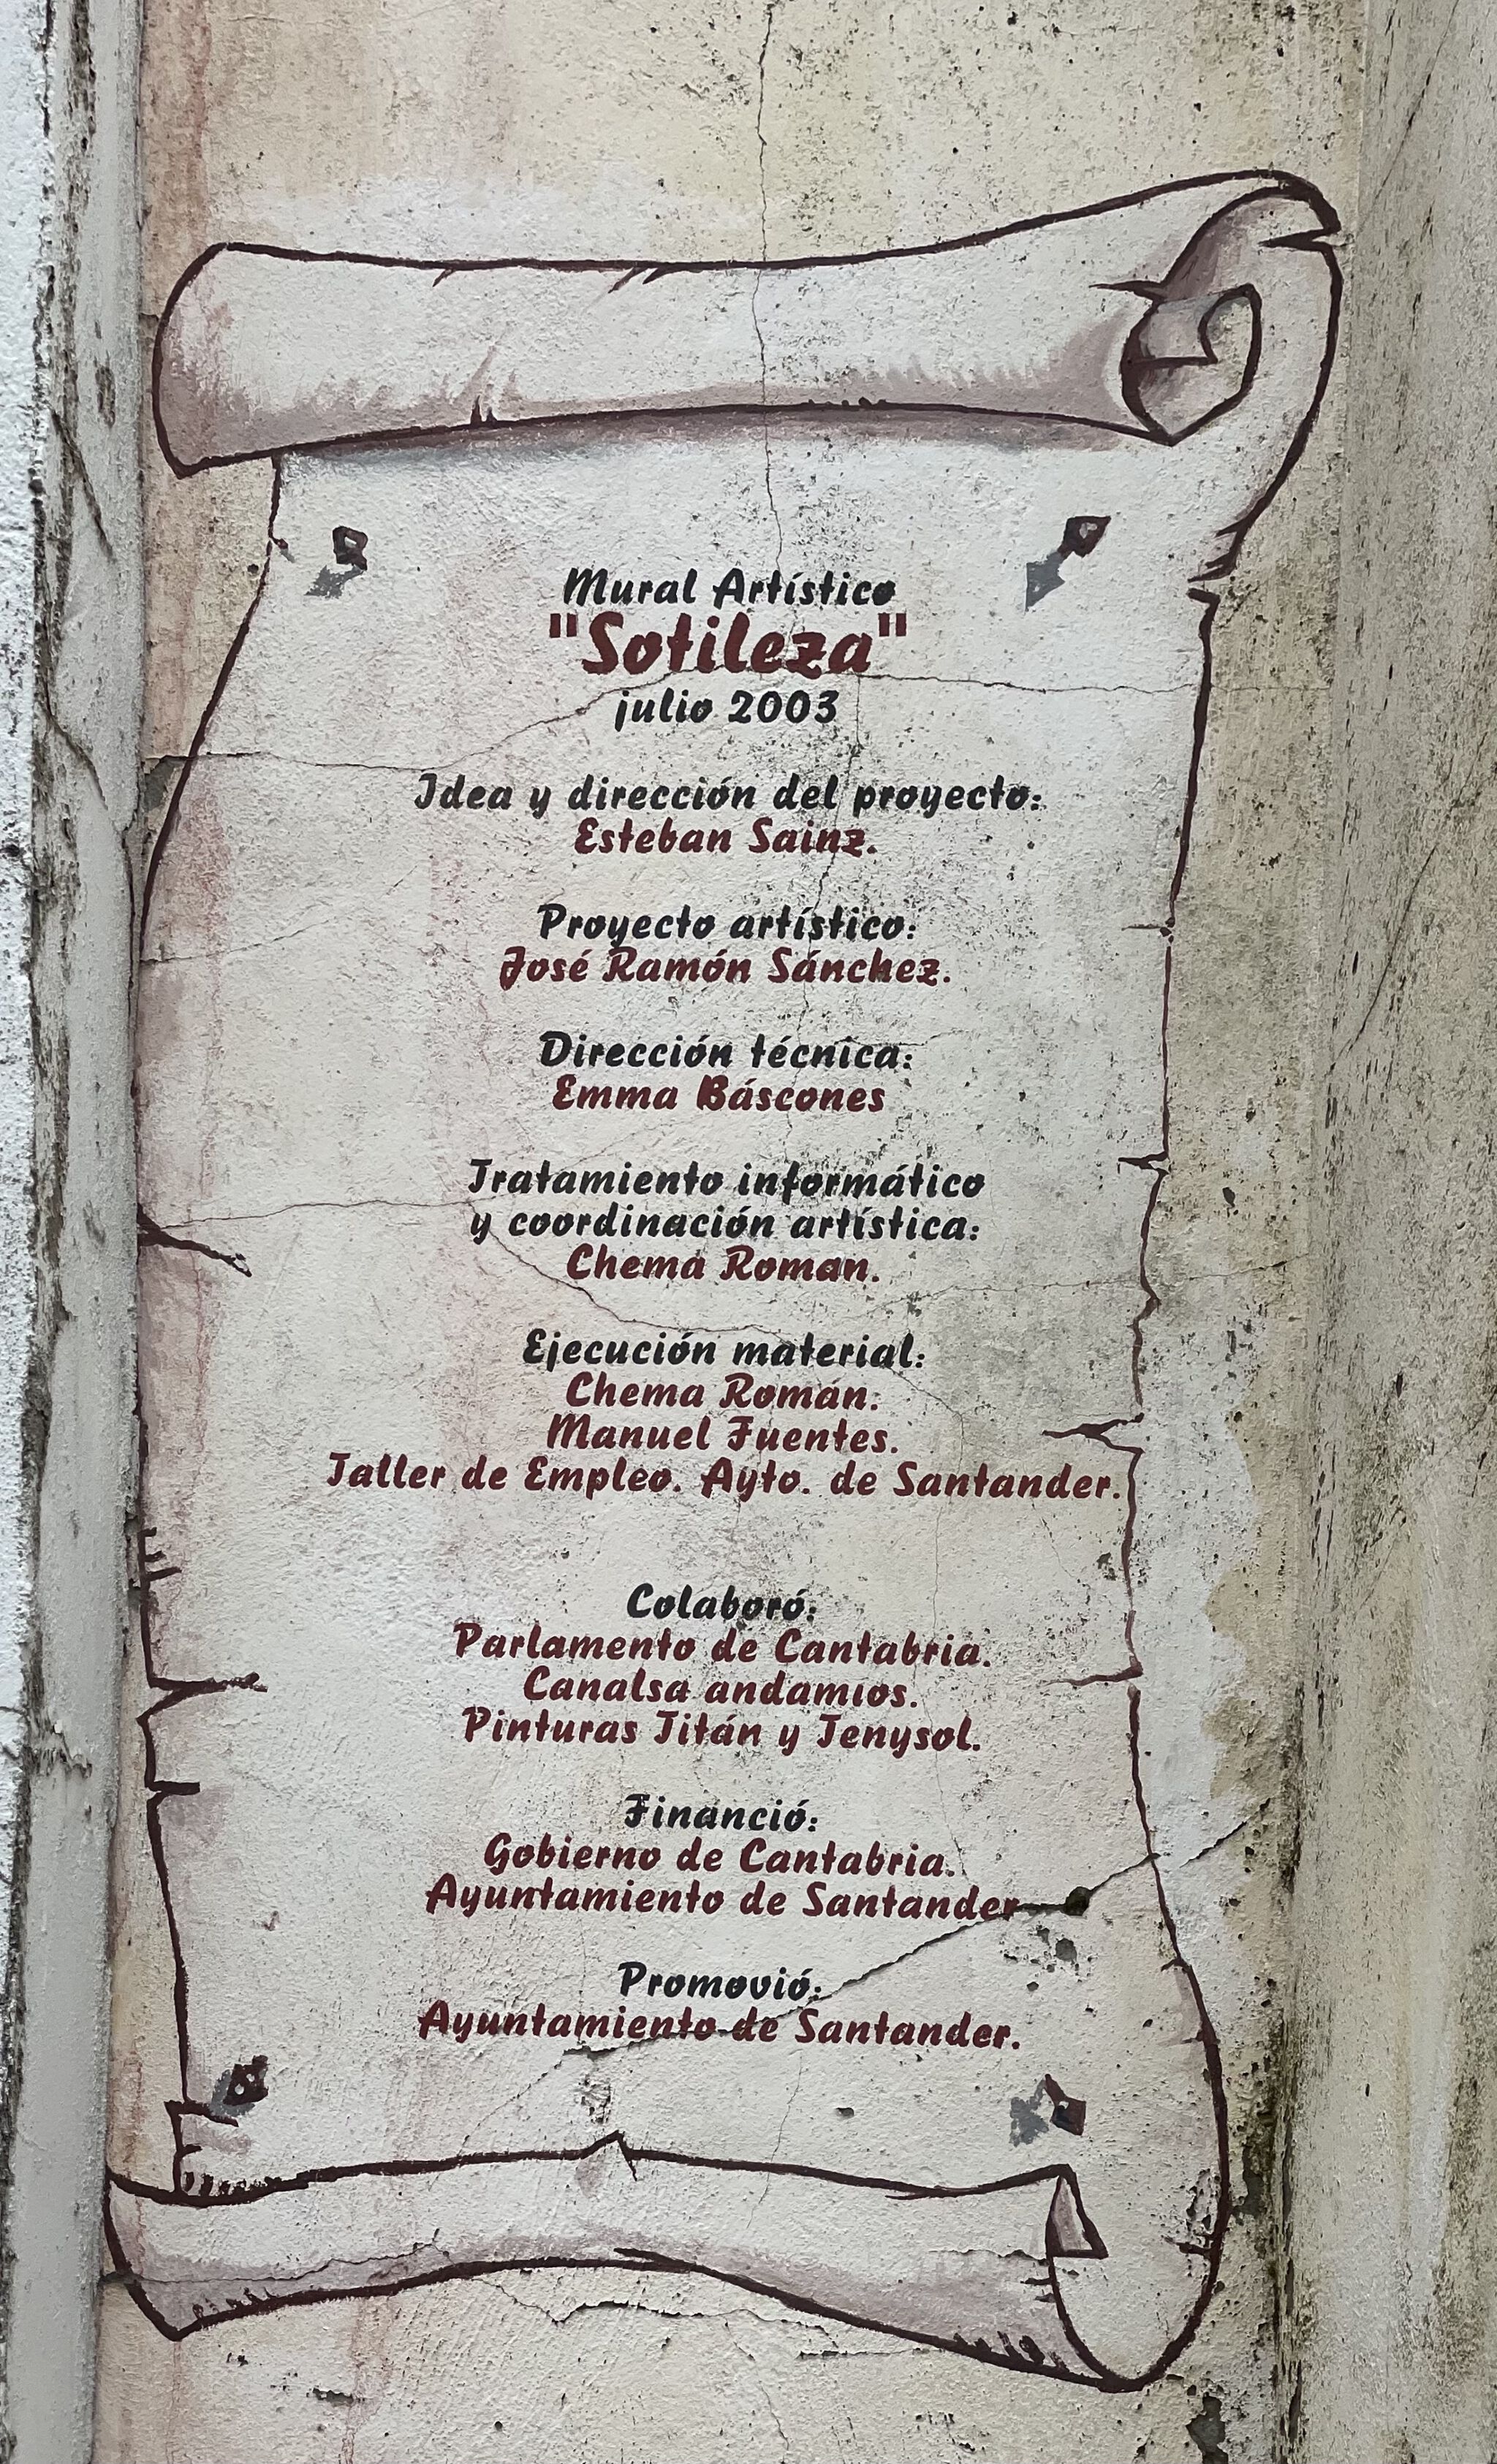 Mural Artístico
"Sotileza"
julio 2003
Idea y dirección del proyecto:
Esteban Sainz.
Proyecto artístico:
José Ramón Sánchez.
Dirección técnica:
Emma Báscones
Tratamiento informático
y coordinación artística:
Chema Roman.
Ejecución material:
Chema Román.
Manuel Fuentes.
Taller de Empleo. Ayto. de Santander.
Colaboró:
Parlamento de Cantabria.
Canalsa andamios.
Pinturas Titán y Jenysol.
Financió:
Gobierno de Cantabria.
Ayuntamiento de Santander
Promovió:
Ayuntamiento de Santander.